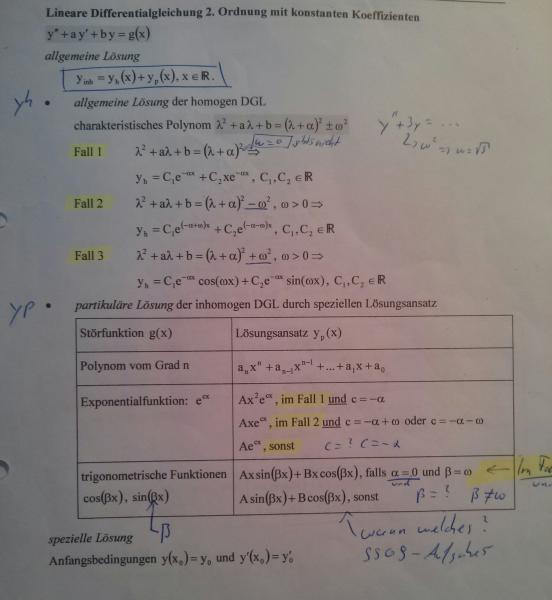 Lineare Differentialgleichung 2. Ordnung mit konstanten Koeffizienten
y″ + a y′ + b y = g(x)
allgemeine Lösung
y_inh = y_h(x) + y_p(x), x ∈ ℝ.
yh • allgemeine Lösung der homogen DGL
charakteristisches Polynom λ² + aλ + b = (λ + α)² ± ω²
y″ + 3y = ...
ω² ⇒ ω = √3
Fall 1 λ² + aλ + b = (λ + α)² ⇒
ω = 0
y_h = C₁e^(-αx) + C₂xe^(-αx), C₁, C₂ ∈ ℝ
Fall 2 λ² + aλ + b = (λ + α)² − ω², ω > 0 ⇒
y_h = C₁e^((-α+ω)x) + C₂e^((-α-ω)x), C₁, C₂ ∈ ℝ
Fall 3 λ² + aλ + b = (λ + α)² + ω², ω > 0 ⇒
y_h = C₁e^(-αx) cos(ωx) + C₂e^(-αx) sin(ωx), C₁, C₂ ∈ ℝ
yp • partikuläre Lösung der inhomogen DGL durch speziellen Lösungsansatz
Störfunktion g(x) Lösungsansatz y_p(x)
Polynom vom Grad n a_n xⁿ + a_(n-1) x^(n-1) + ... + a₁x + a₀
Exponentialfunktion: e^(cx) Ax²e^(cx), im Fall 1 und c = −α
Axe^(cx), im Fall 2 und c = −α + ω oder c = −α − ω
Ae^(cx), sonst c = ? c = −α
trigonometrische Funktionen Ax sin(βx) + Bx cos(βx), falls α = 0 und β = ω ←
und
cos(βx), sin(βx) A sin(βx) + B cos(βx), sonst β = ? β ≠ ω
β
wann welches?
SS09 - Aufgabe
spezielle Lösung
Anfangsbedingungen y(x₀) = y₀ und y′(x₀) = y′₀